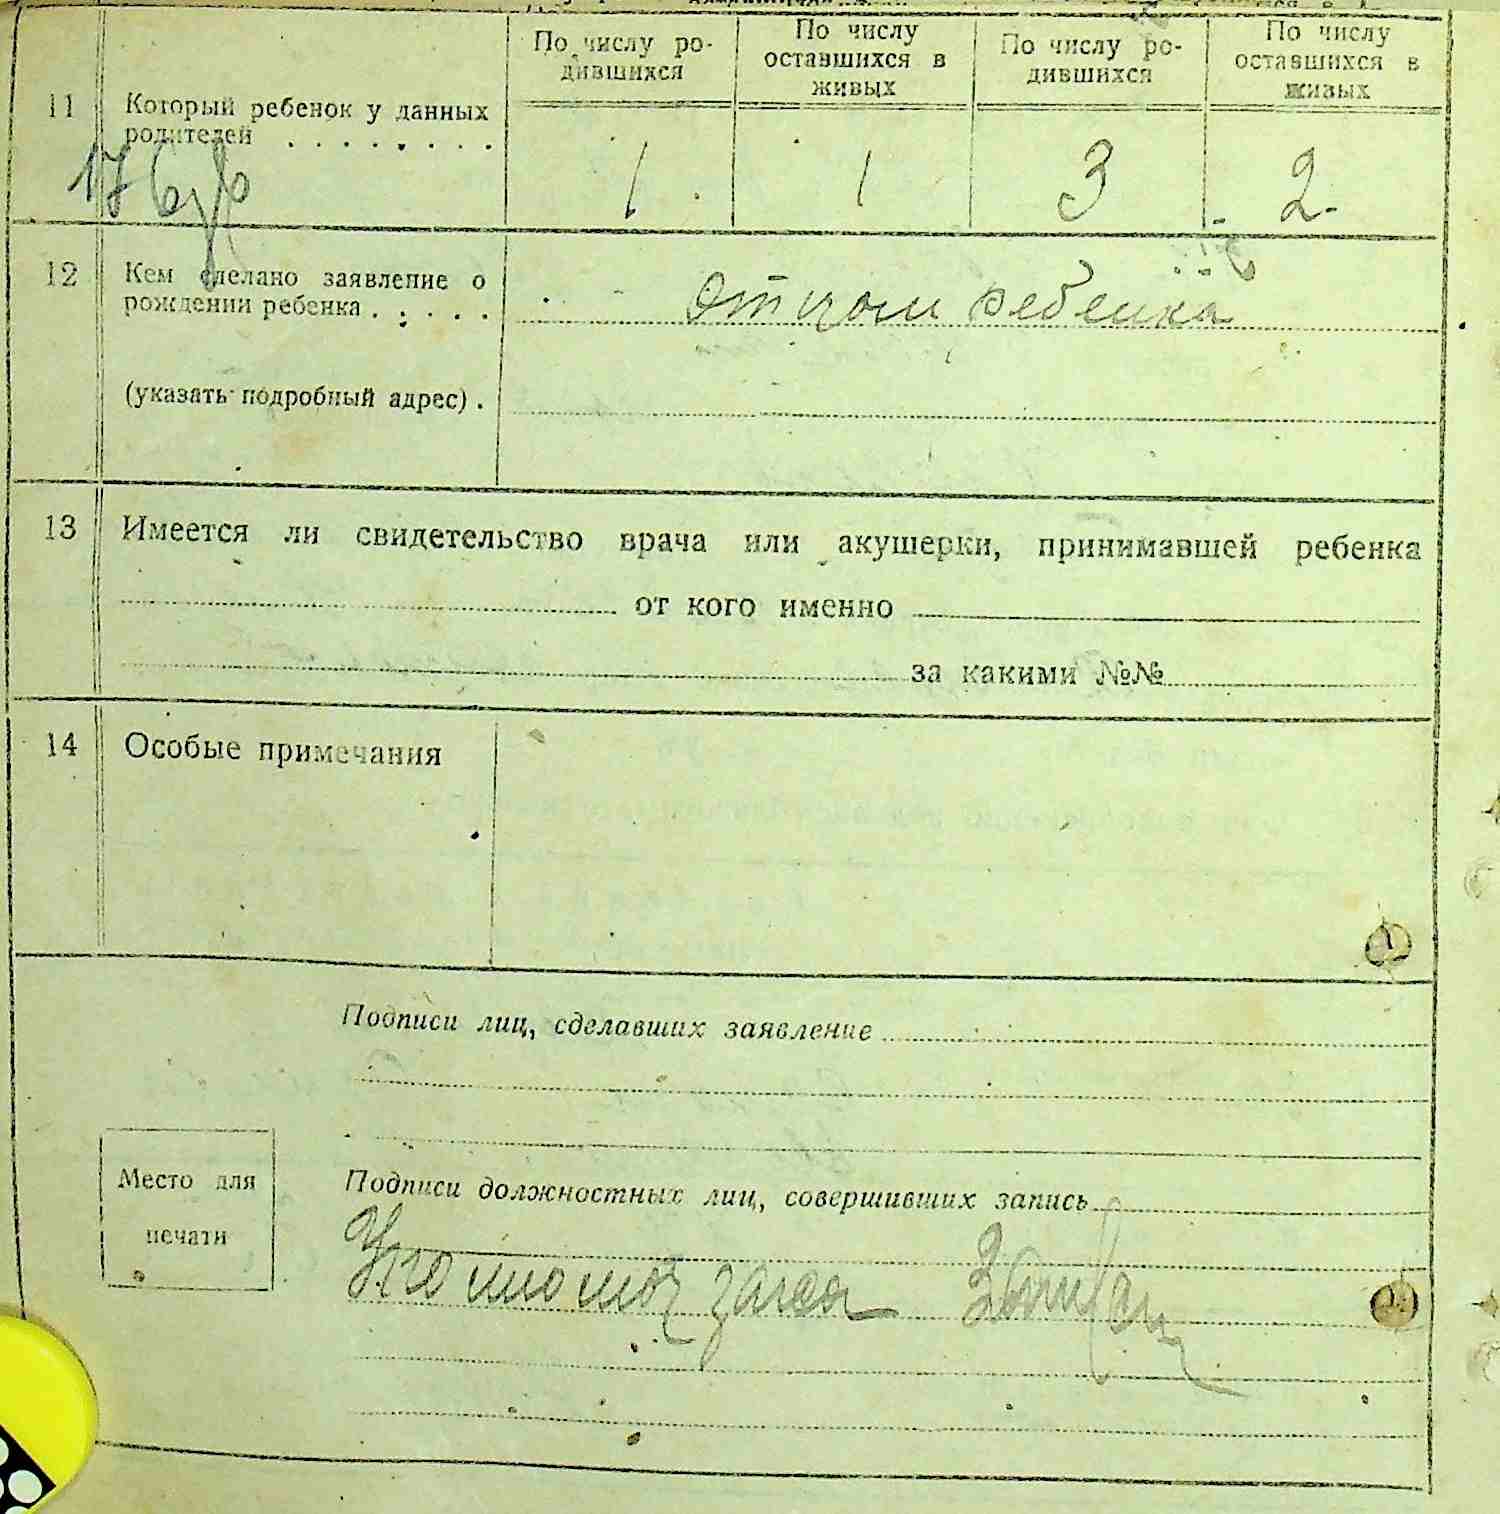 По числу ро-
дившихся
По числу
оставшихся в
живых
По числу ро-
дившихся
По числу
оставшихся в
живых
11 Который ребенок у данных
родителей . . . . . . . .
1 1 3 2
12 Кем сделано заявление о
рождении ребенка . . . . .
отцом ребенка
(указать подробный адрес) .
13 Имеется ли свидетельство врача или акушерки, принимавшей ребенка
от кого именно
за какими №№
14 Особые примечания
Подписи лиц, сделавших заявление
Место для
печати
Подписи должностных лиц, совершивших запись
загса